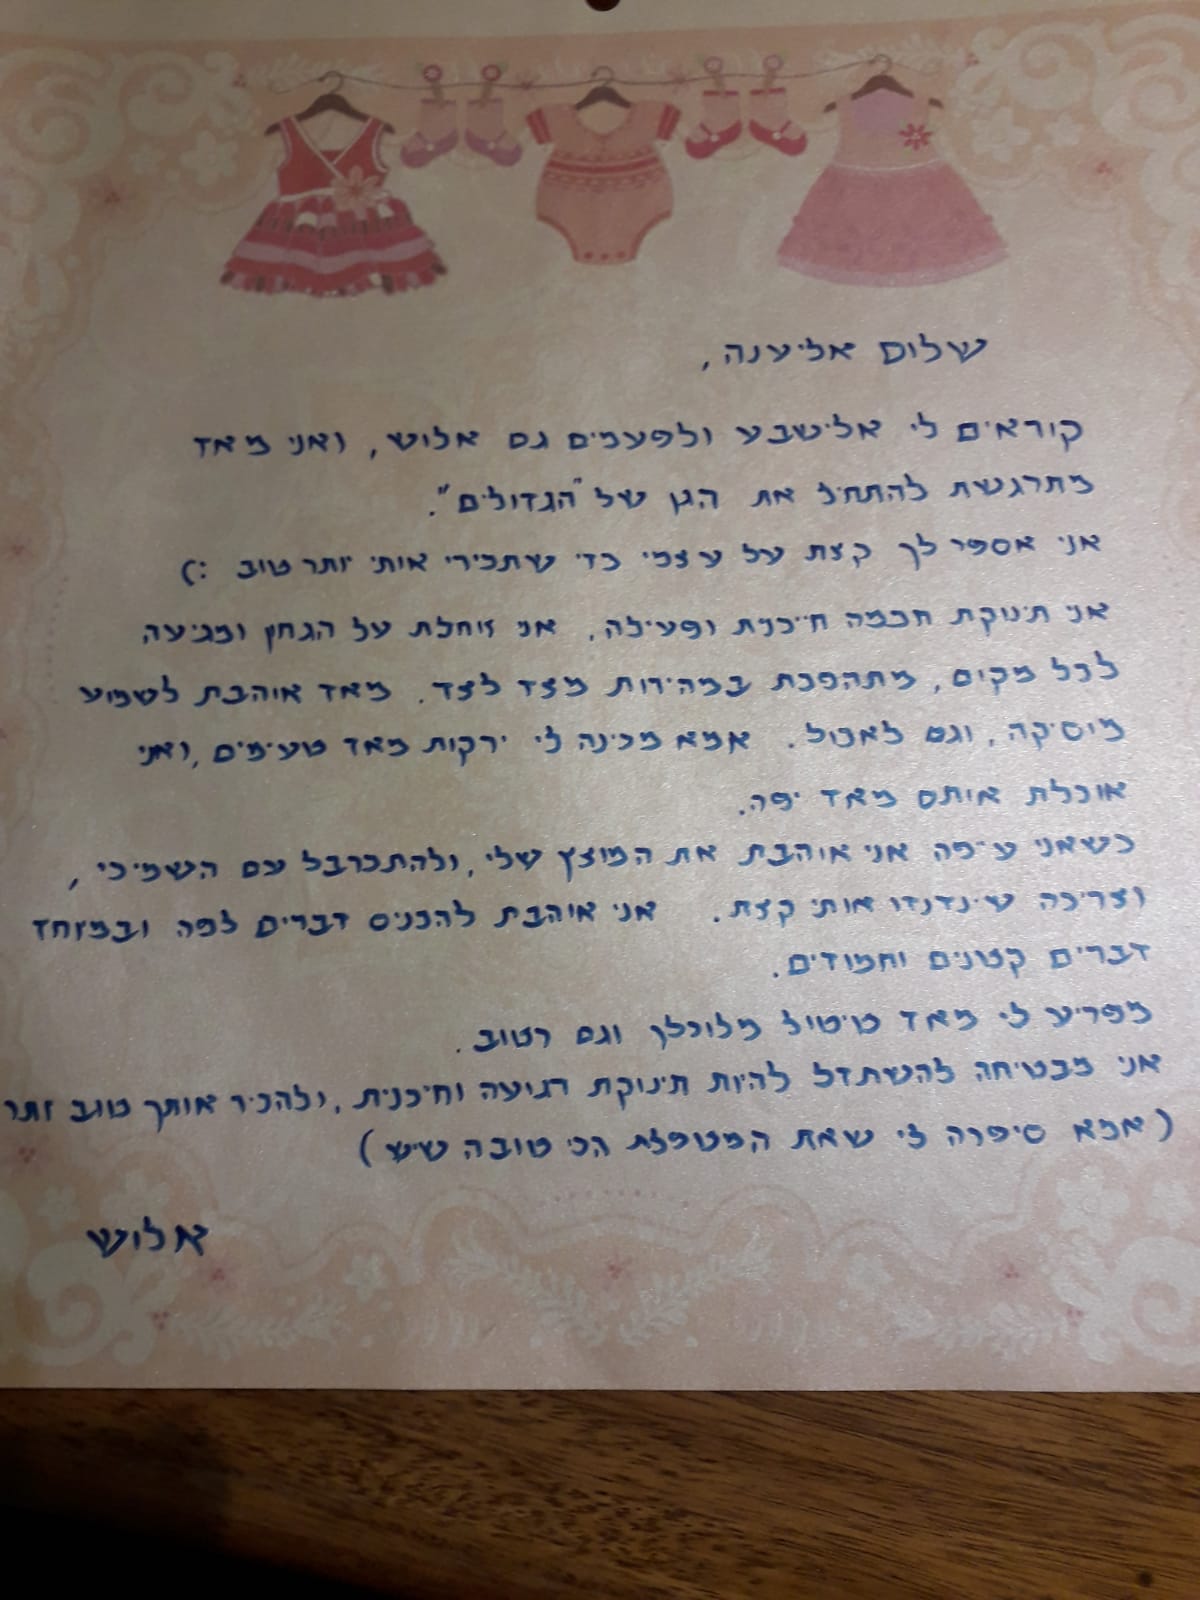 שלום אליענה,
קוראים לי אלישבע ולפעמים גם אלוש, ואני מאד
מתרגשת להתחיל את הגן של "הגדולים".
אני אספר לך קצת על עצמי כדי שתכירי אותי יותר טוב :)
אני תינוקת חכמה חייכנית ופעילה. אני זוחלת על הגחון ומגיעה
לכל מקום, מתהפכת במהירות מצד לצד. מאד אוהבת לשמוע
מוסיקה, וגם לאכול. אמא מכינה לי ירקות מאד טעימים, ואני
אוכלת אותם מאד יפה.
כשאני עייפה אני אוהבת את המוצץ שלי, ולהתכרבל עם השמיכי,
וצריכה שינדנדו אותי קצת. אני אוהבת להכניס דברים לפה ובמיוחד
דברים קטנים וחמודים.
מפריע לי מאד טיטול מלוכלך וגם רטוב.
אני מבטיחה להשתדל להיות תינוקת רגועה וחיכנית, ולהכיר אותך טוב יותר
(אמא סיפרה לי שאת המטפלת הכי טובה שיש)
אלוש